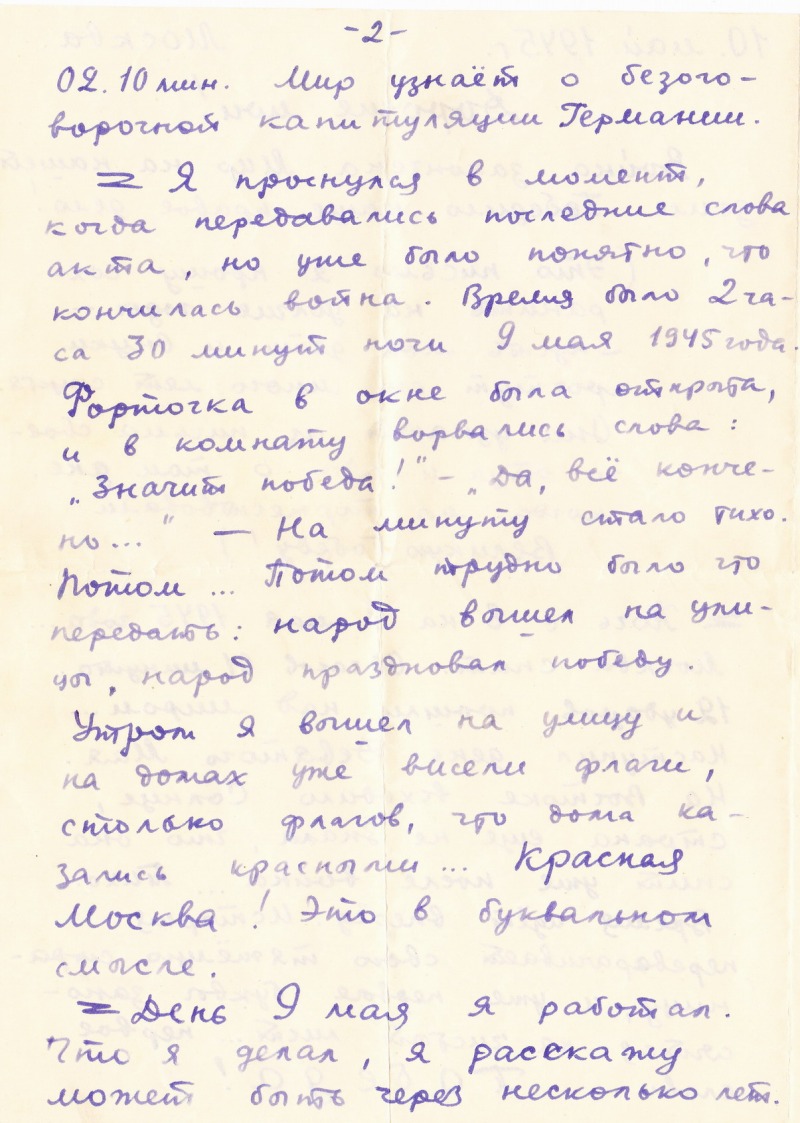 -2-
02.10 мин. Мир узнаёт о безого-
ворочной капитуляции Германии.
= Я проснулся в момент,
когда передавались последние слова
акта, но уже было понятно, что
кончилась война. Время было 2 ча-
са 30 минут ночи 9 мая 1945 года.
Форточка в окне была открыта,
и в комнату ворвались слова:
„Значит победа!" – „Да, всё конче-
но..." — На минуту стало тихо.
Потом... Потом трудно было что
передать: народ вышел на ули-
цы, народ праздновал победу.
Утром я вышел на улицу и
на домах уже висели флаги,
столько флагов, что дома ка-
зались красными... Красная
Москва! Это в буквальном
смысле.
= День 9 мая я работал.
Что я делал, я расскажу
может быть через несколько лет.